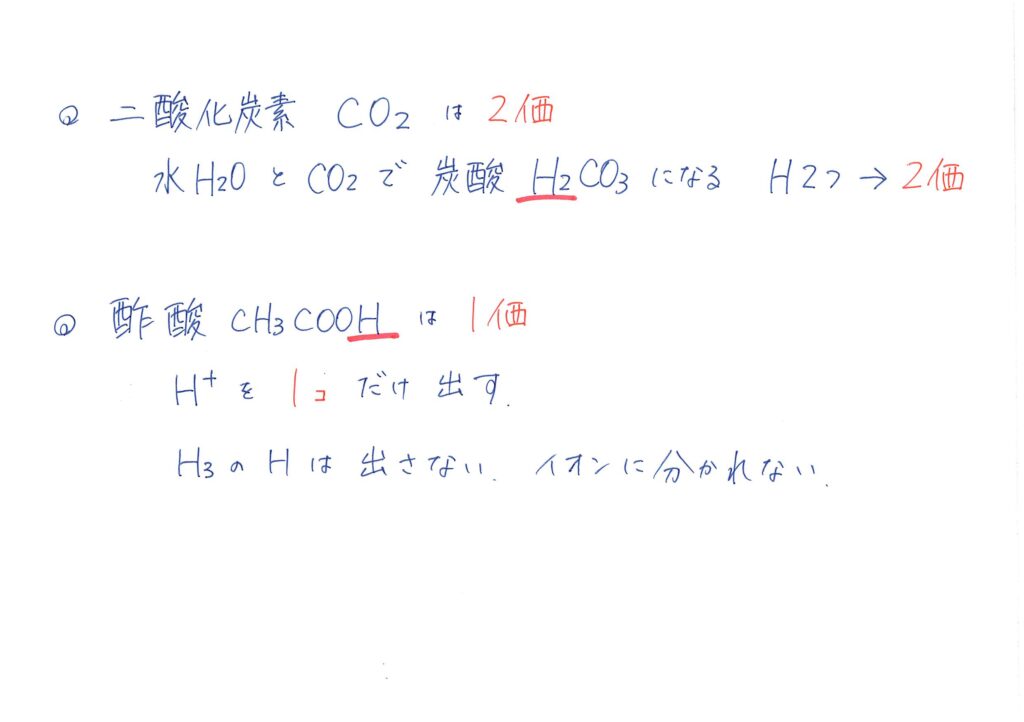 ◎ 二酸化炭素 CO2 は 2価
水 H2O と CO2 で 炭酸 H2CO3 になる H2つ → 2価
◎ 酢酸 CH3COOH は 1価
H+ を 1コ だけ 出す.
H3 の H は 出さない. イオンに分かれない.